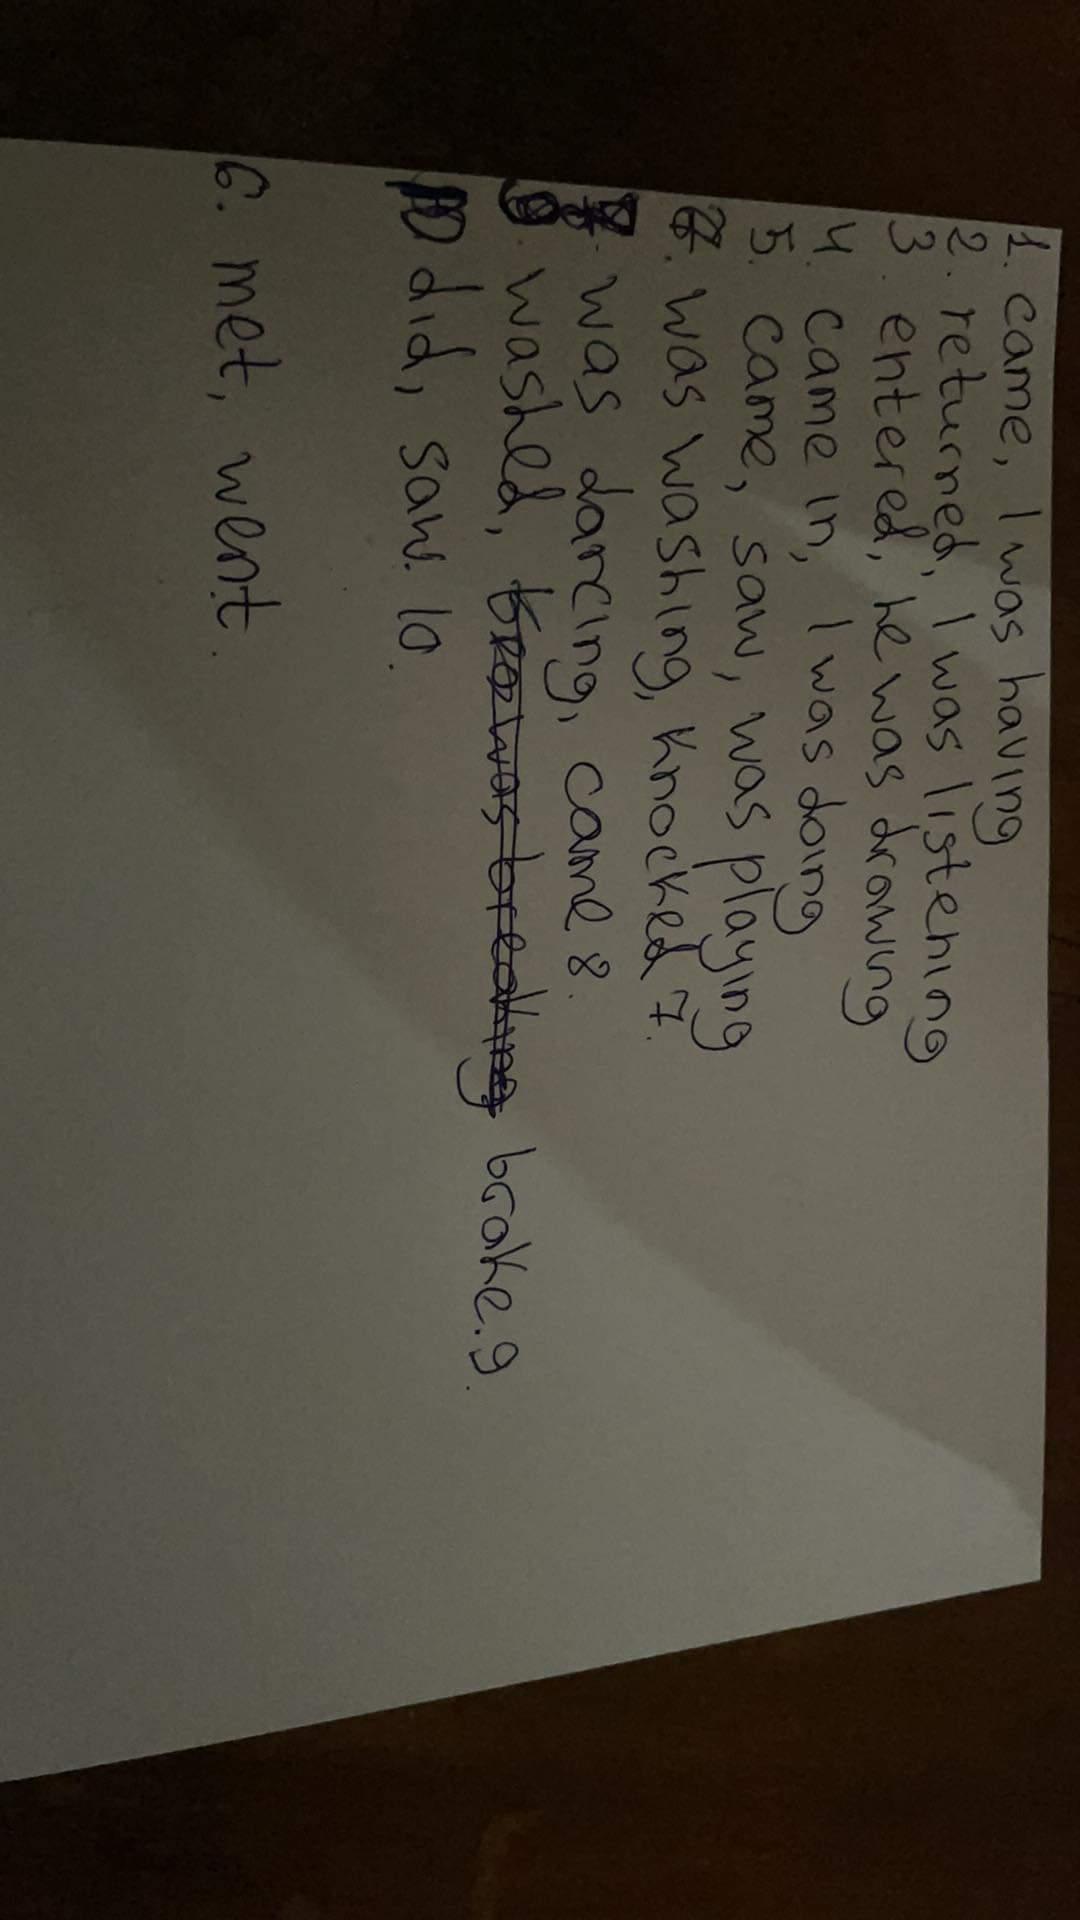 1. came, I was having
2. returned, I was listening
3. entered, he was drawing
4. came in, I was doing
5. came, saw, was playing
7. was washing, knocked 7.
was dancing, came 8.
9. washed, brake. 9.
10 did, saw. 10.
6. met, went.